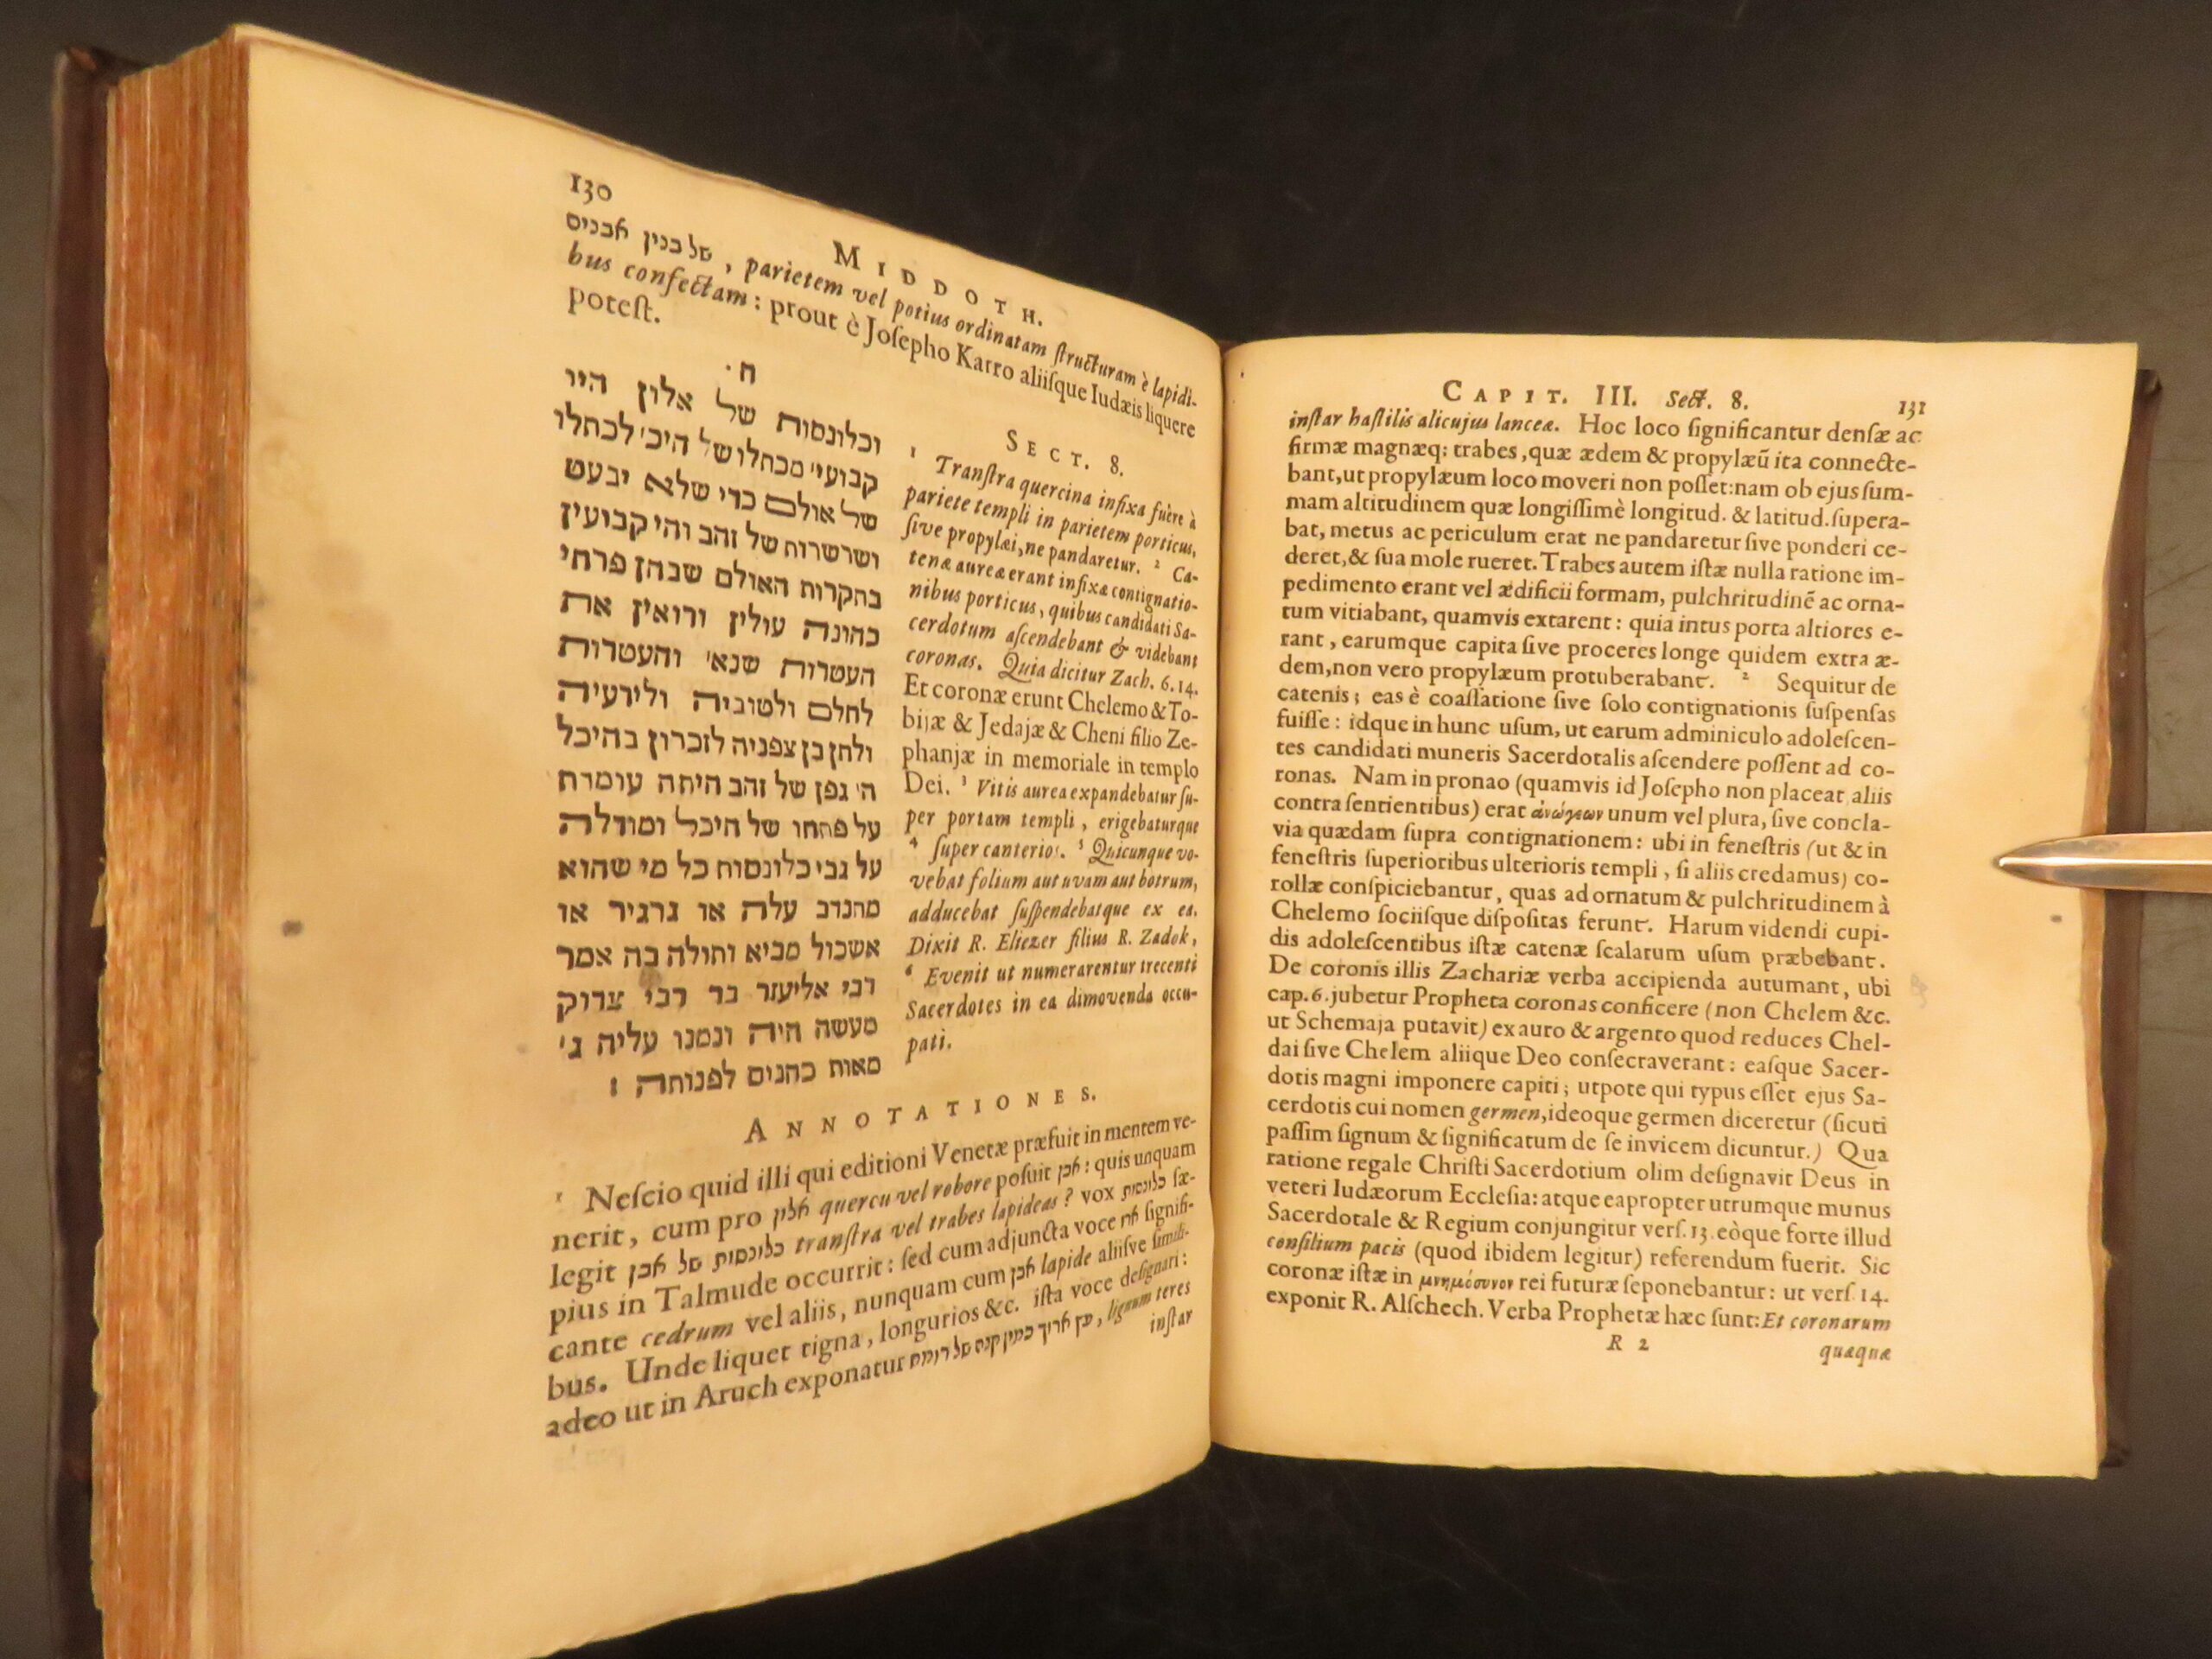 130
MIDDOTH.
של בנין אבנים, parietem vel potius ordinatam ſtructuram è lapidi-
bus confectam: prout è Joſepho Karro aliiſque Iudæis liquere
poteſt.
ח.
וכלונסות של אלון היו
קבועי' מכחלו של היכ' לכתלו
של אולם כדי שלא יבעט
ושרשרות של זהב והי קבועין
בתקרות האולם שבהן פרחי
כהונה עולין ורואין את
העטרות שנא' והעטרות
לחלם ולטוביה ולירעיה
ולחן בן צפניה לזכרון בהיכל
ה' גפן של זהב היתה עומרת
על פתחו של היכל ומודלה
על גבי כלונסות כל מי שהוא
מתנדב עלה או גרגיר או
אשכול מביא ותולה בה אמר
רבי אליעזר בר רבי צדוק
מעשה היה ונמנו עליה ג'
מאות כהנים לפנותה :
SECT. 8.
1 Tranſtra quercina infixa fuêre à
pariete templi in parietem porticus,
ſive propylæi, ne pandaretur. 2 Ca-
tenæ aureæ erant infixæ contignatio-
nibus porticus, quibus candidati Sa-
cerdotum aſcendebant & videbant
coronas. Quia dicitur Zach. 6.14.
Et coronæ erunt Chelemo & To-
bijæ & Jedajæ & Cheni filio Ze-
phanjæ in memoriale in templo
Dei. 3 Vitis aurea expandebatur ſu-
per portam templi, erigebaturque
4 ſuper canterios. 5 Quicunque vo-
vebat folium aut uvam aut botrum,
adducebat ſuſpendebatque ex ea.
Dixit R. Eliezer filius R. Zadok,
6 Evenit ut numerarentur trecenti
Sacerdotes in ea dimovenda occu-
pati.
ANNOTATIONES.
1 Neſcio quid illi qui editioni Venetæ præfuit in mentem ve-
nerit, cum pro אלון quercu vel robore poſuit אבן: quis unquam
legit כלונסות של אבן tranſtra vel trabes lapideas? vox כלונסות ſæ-
pius in Talmude occurrit: ſed cum adjuncta voce ארז ſignifi-
cante cedrum vel aliis, nunquam cum אבן lapide aliiſve ſimili-
bus. Unde liquet tigna, longurios &c. iſta voce deſignari:
adeo ut in Aruch exponatur עץ ארוך כמין קנה של רומח, lignum teres
inſtar
CAPIT. III. Sect. 8. 131
inſtar haſtilis alicujus lanceæ. Hoc loco ſignificantur denſæ ac
firmæ magnæq; trabes, quæ ædem & propylæū ita connecte-
bant, ut propylæum loco moveri non poſſet: nam ob ejus ſum-
mam altitudinem quæ longiſſimè longitud. & latitud. ſupera-
bat, metus ac periculum erat ne pandaretur ſive ponderi ce-
deret, & ſua mole rueret. Trabes autem iſtæ nulla ratione im-
pedimento erant vel ædificii formam, pulchritudinē ac orna-
tum vitiabant, quamvis extarent: quia intus porta altiores e-
rant, earumque capita ſive proceres longe quidem extra æ-
dem, non vero propylæum protuberabant. 2 Sequitur de
catenis; eas è coaſſatione ſive ſolo contignationis ſuſpenſas
fuiſſe: idque in hunc uſum, ut earum adminiculo adoleſcen-
tes candidati muneris Sacerdotalis aſcendere poſſent ad co-
ronas. Nam in pronao (quamvis id Joſepho non placeat aliis
contra ſentientibus) erat ἀνώγεων unum vel plura, ſive concla-
via quædam ſupra contignationem: ubi in feneſtris (ut & in
feneſtris ſuperioribus ulterioris templi, ſi aliis credamus) co-
rollæ conſpiciebantur, quas ad ornatum & pulchritudinem à
Chelemo ſociiſque diſpoſitas ferunt. Harum videndi cupi-
dis adoleſcentibus iſtæ catenæ ſcalarum uſum præbebant.
De coronis illis Zachariæ verba accipienda autumant, ubi
cap. 6. jubetur Propheta coronas conficere (non Chelem &c.
ut Schemaja putavit) ex auro & argento quod reduces Chel-
dai ſive Chelem aliique Deo conſecraverant: eaſque Sacer-
dotis magni imponere capiti; utpote qui typus eſſet ejus Sa-
cerdotis cui nomen germen, ideoque germen diceretur (ſicuti
paſſim ſignum & ſignificatum de ſe invicem dicuntur.) Qua
ratione regale Chriſti Sacerdotium olim deſignavit Deus in
veteri Iudæorum Eccleſia: atque eapropter utrumque munus
Sacerdotale & Regium conjungitur verſ. 13. eòque forte illud
conſilium pacis (quod ibidem legitur) referendum fuerit. Sic
coronæ iſtæ in μνημόσυνον rei futuræ ſeponebantur: ut verſ. 14.
exponit R. Alſchech. Verba Prophetæ hæc ſunt: Et coronarum
R 2 quæquæ